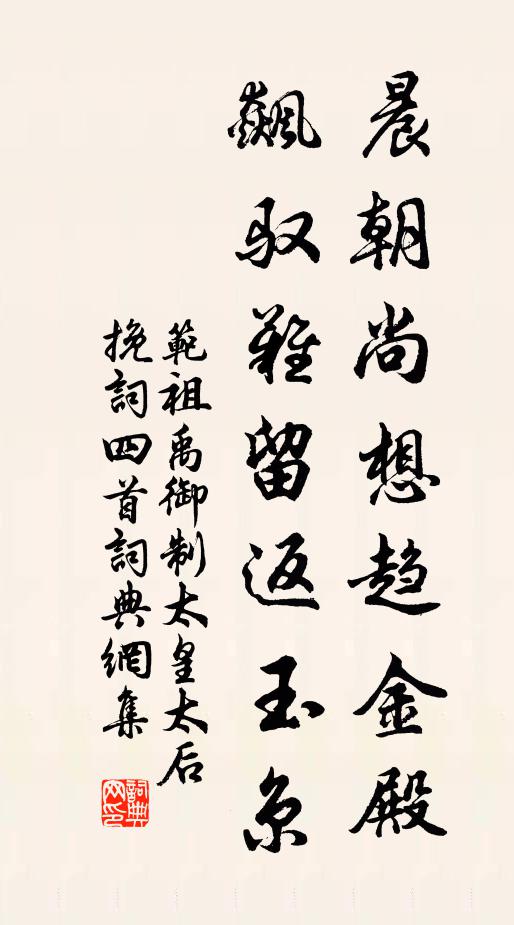 晨朝尚想趋金殿
飙驭难留返玉京
範祖禹御制太皇太后
挽詞四首詞典網集
詞典网印